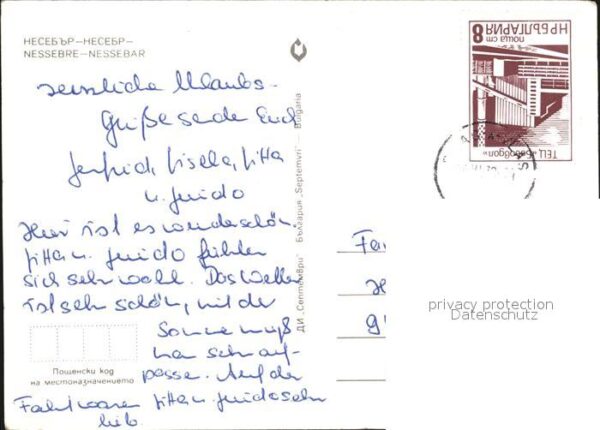 НЕСЕБЪР—НЕСЕБР—
NESSEBRE—NESSEBAR
8
НР БЪЛГАРИЯ
ПОЩА СТ
ТЕЦ „Бобовдол“
Herzliche Urlaubs-
Grüße sende Euch
Gisela, Jitta
u. Guido
Hier ist es wunderschön.
Jitta u. Guido fühlen
sich sehr wohl. Das Wetter
ist sehr schön, mit der
Sonne muß
man sehr auf-
passe. Auf der
Fahrt waren Jitta u. Guido sehr
lieb.
Пощенски код
на местоназначението
ДИ „Септември“ България „Septemvri“ — Bulgaria
Fa
privacy protection
Datenschutz